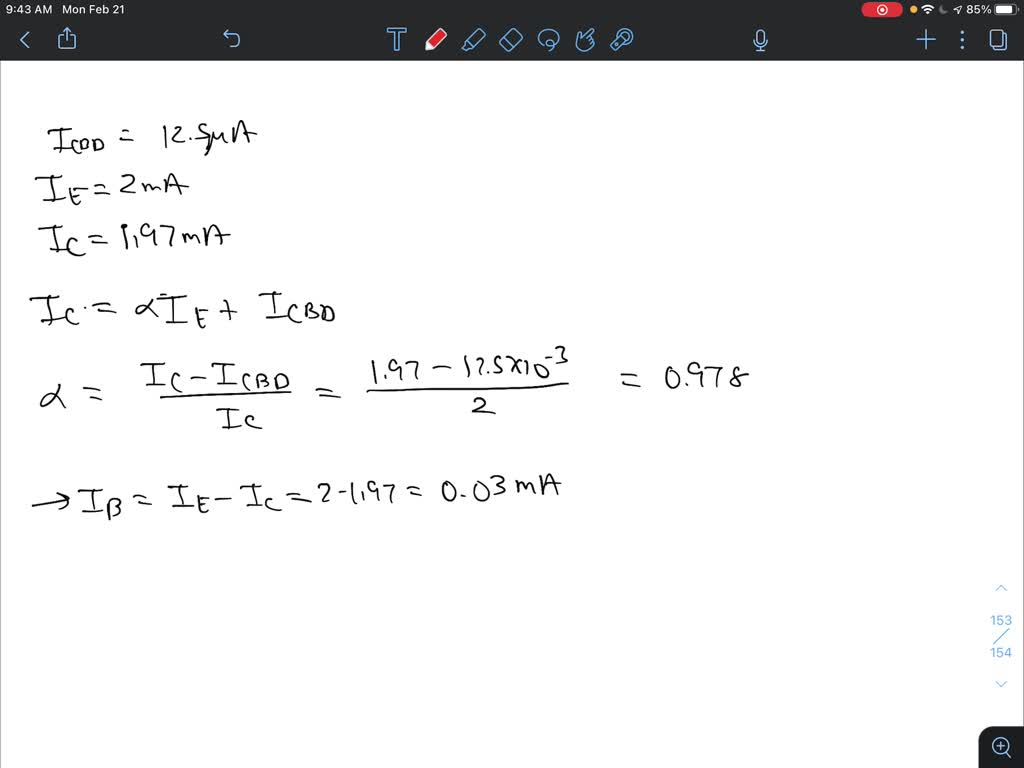 9:43 AM Mon Feb 21 85%
T
I_CBD = 12.5μA
I_E = 2mA
I_C = 1.97mA
I_C = αI_E + I_CBD
α = (I_C - I_CBD) / I_C = (1.97 - 12.5×10^-3) / 2 = 0.978
→ I_B = I_E - I_C = 2-1.97 = 0.03 mA
153
154